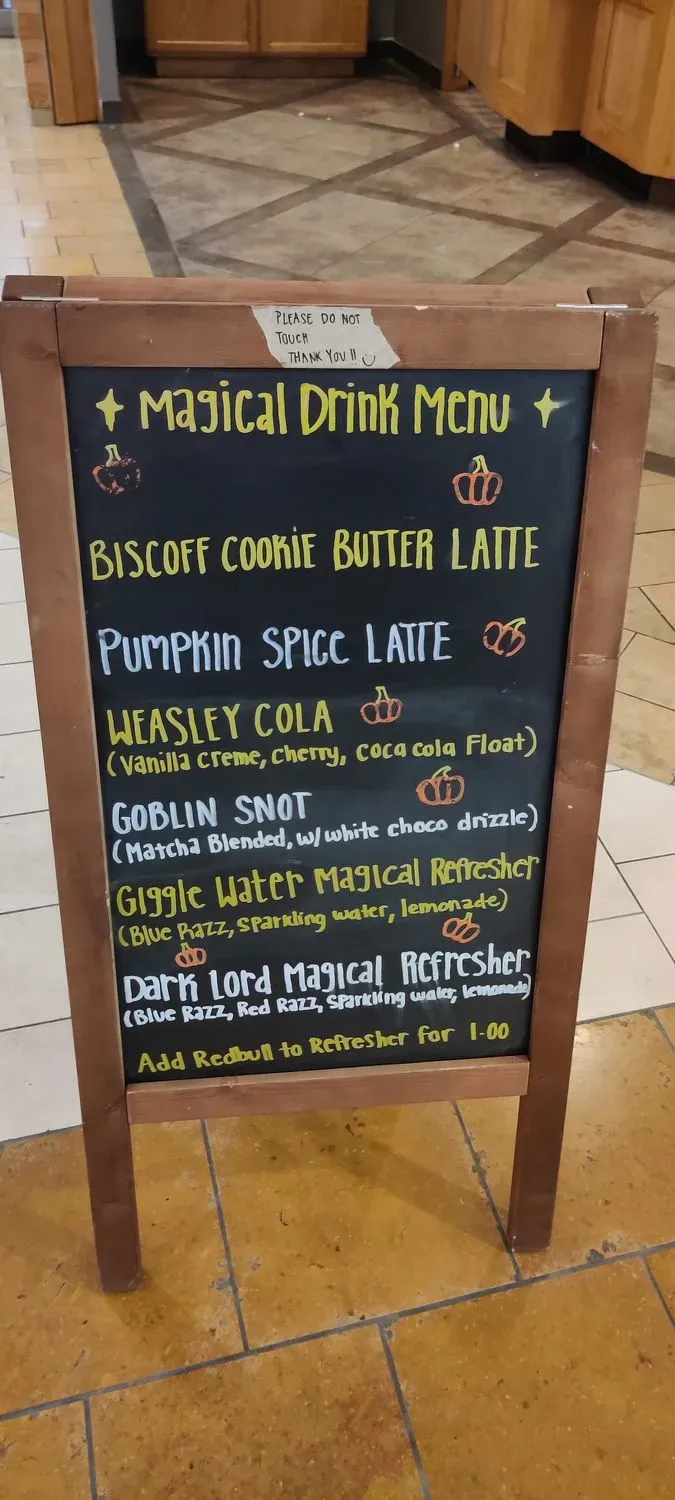 PLEASE DO NOT
TOUCH
THANK YOU !!
Magical Drink Menu
BISCOFF COOKIE BUTTER LATTE
PUMPKIN SPICE LATTE
WEASLEY COLA
(Vanilla Creme, Cherry, Coca cola Float)
GOBLIN SNOT
(Matcha Blended, w/ white choco drizzle)
Giggle Water Magical Refresher
(Blue Razz, sparkling water, lemonade)
Dark Lord Magical Refresher
(Blue Razz, Red Razz, sparkling water, lemonade)
Add Redbull to Refresher for 1.00